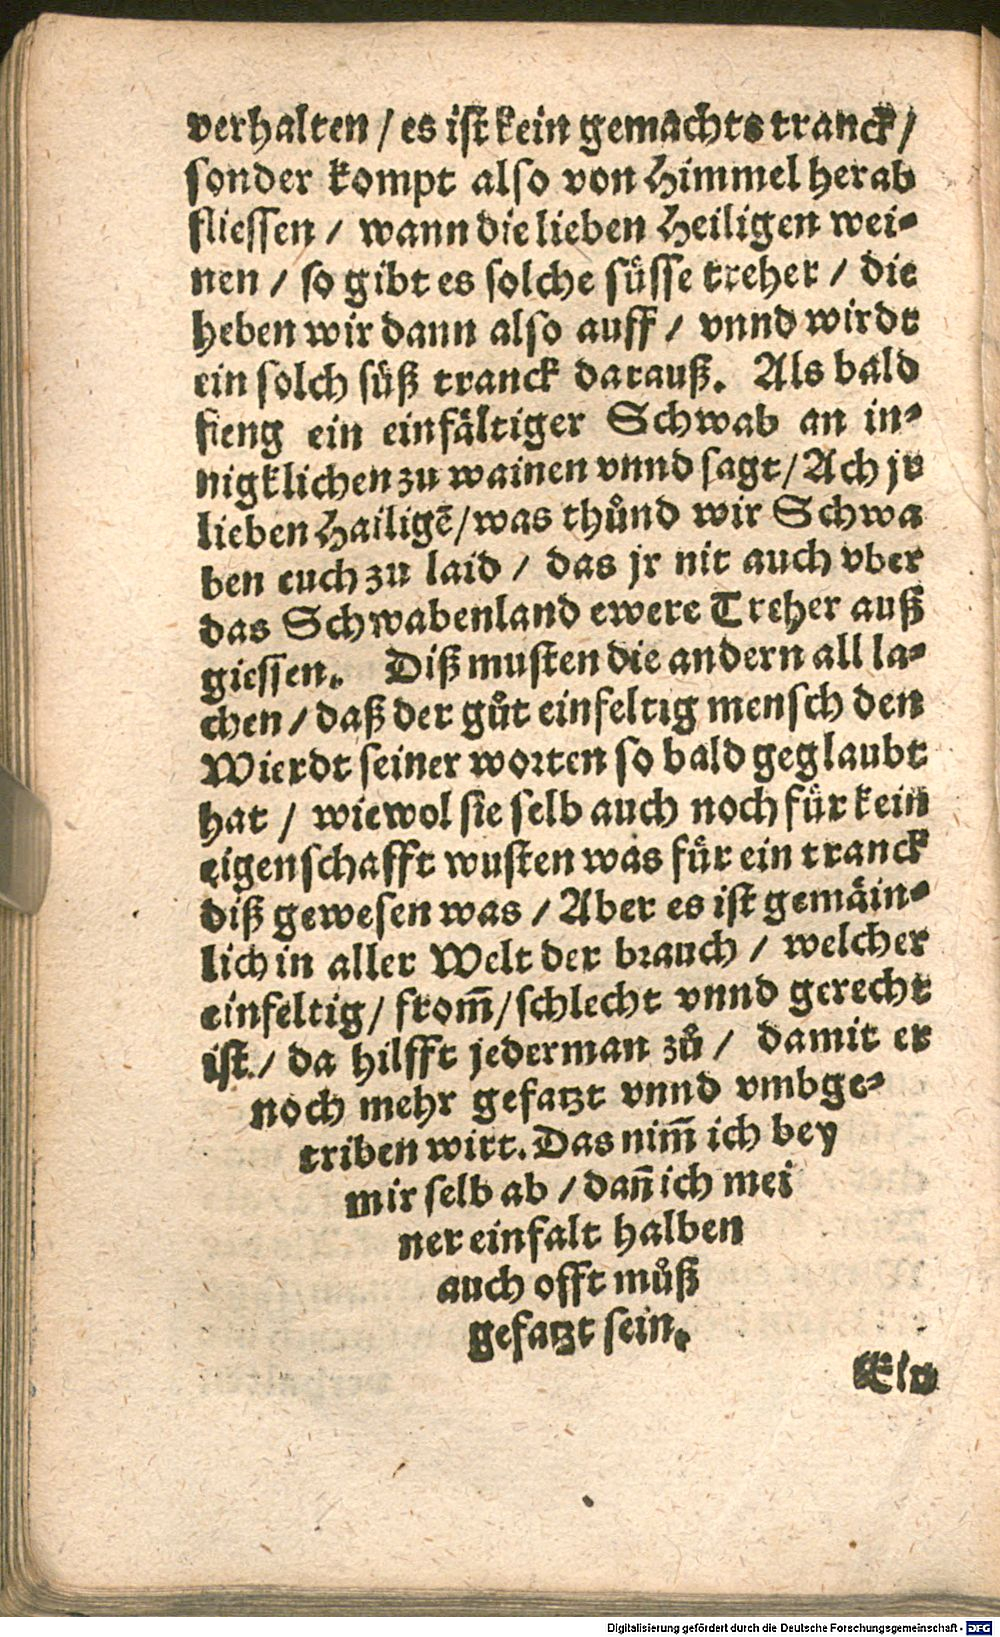 verhalten / es ist kein gemachts tranck /
sonder kompt also von Himmel herab
fliessen / wann die lieben Heiligen wei-
nen / so gibt es solche suͤsse treher / die
heben wir dann also auff / vnnd wirdt
ein solch suͤß tranck darauß. Als bald
fieng ein einfaͤltiger Schwab an in-
nigklichen zu wainen vnnd sagt / Ach jr
lieben Hailigẽ / was thuͦnd wir Schwa
ben euch zu laid / das jr nit auch vber
das Schwabenland ewere Treher auß
giessen. Diß musten die andern all la-
chen / daß der guͦt einfeltig mensch den
Wierdt seiner worten so bald geglaubt
hat / wiewol sie selb auch noch fuͤr kein
eigenschafft wusten was fuͤr ein tranck
diß gewesen was / Aber es ist gemaͤin-
lich in aller Welt der brauch / welcher
einfeltig / from̃ / schlecht vnnd gerecht
ist / da hilfft jederman zuͦ / damit er
noch mehr gefatzt vnnd vmbge-
triben wirt. Das nim̃ ich bey
mir selb ab / dañ ich mei
ner einfalt halben
auch offt muͦß
gefatzt sein.
Digitalisierung gefördert durch die Deutsche Forschungsgemeinschaft - DFG